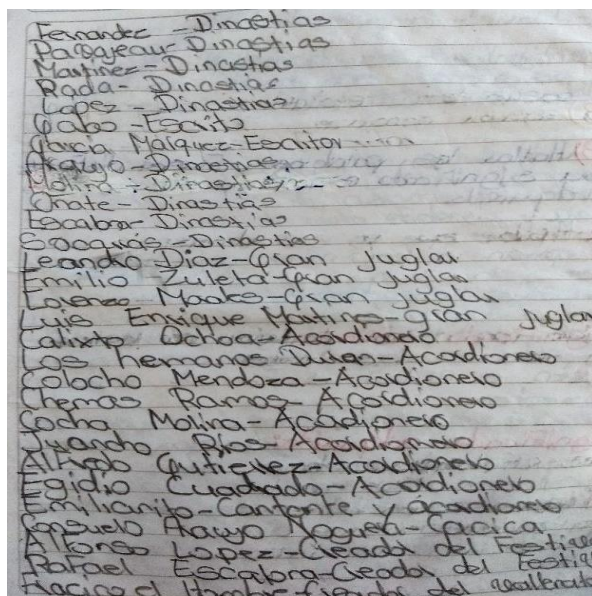 Fernandez - Dinastias
Pavajeau - Dinastias
Martinez - Dinastias
Rada - Dinastias
Lopez - Dinastias
Gabo - Escrito
Garcia Marquez - Escritor
Araujo - Dinastias
Molina - Dinastias
Oñate - Dinastias
Escabra - Dinastias
Socarrás - Dinastias
Leandro Diaz - Gran juglar
Emilio Zuleta - Gran juglar
Lorenzo Morales - Gran juglar
Luis Enrique Martines - gran juglar
Calixto Ochoa - Acordionero
Los hermanos Duran - Acordionero
Colocho Mendoza - Acordionero
Chemas Ramos - Acordionero
Cocha Molina - Acordionero
Juancho Rios - Acordionero
Alfredo Gutierrez - Acordionero
Egidio Cuadrado - Acordionero
Emilianito - Cantante y acordionero
Consuelo Araujo Noguera - Cacica
Alfonso Lopez - Creador del Festival
Rafael Escabra - Creador del Festival
el Hombre - Creador del vallenato